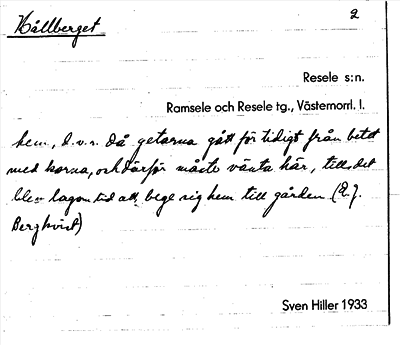 Hållberget 2
Resele s:n.
Ramsele och Resele tg., Västernorrl. l.
hem, d.v.s. då getarna gått för tidigt från betet
med korna, och därför måste vänta här, tills det
blev lagom tid att bege sig hem till gården (E.J.
Bergkvist)
Sven Hiller 1933